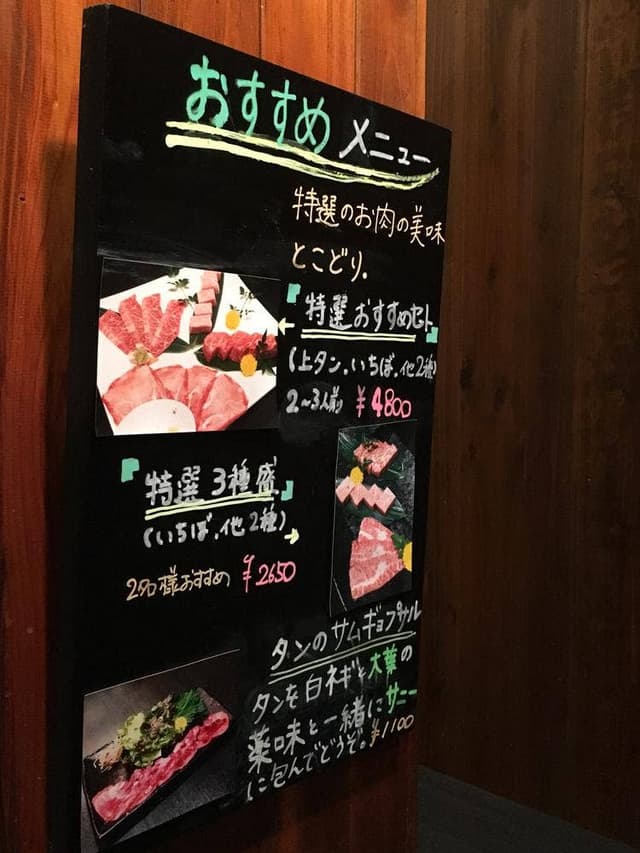 おすすめ メニュー
特選のお肉の美味
とこどり。
『特選おすすめセット』
(上タン、いちぼ、他2種)
2〜3人前 ¥4800
『特選3種盛』
(いちぼ、他2種)
2名様おすすめ ¥2650
タンのサムギョプサル
タンを白ネギと大葉の
薬味と一緒にサニー
に包んでどうぞ。¥1100